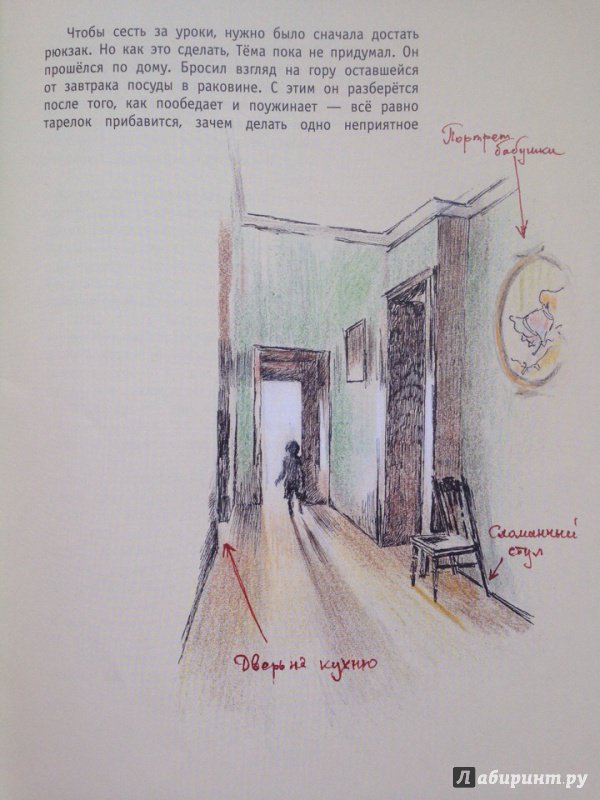 Чтобы сесть за уроки, нужно было сначала достать
рюкзак. Но как это сделать, Тёма пока не придумал. Он
прошёлся по дому. Бросил взгляд на гору оставшейся
от завтрака посуды в раковине. С этим он разберётся
после того, как пообедает и поужинает — всё равно
тарелок прибавится, зачем делать одно неприятное
Портрет
бабушки
Сломанный
стул
Дверь на кухню
Лабиринт.ру